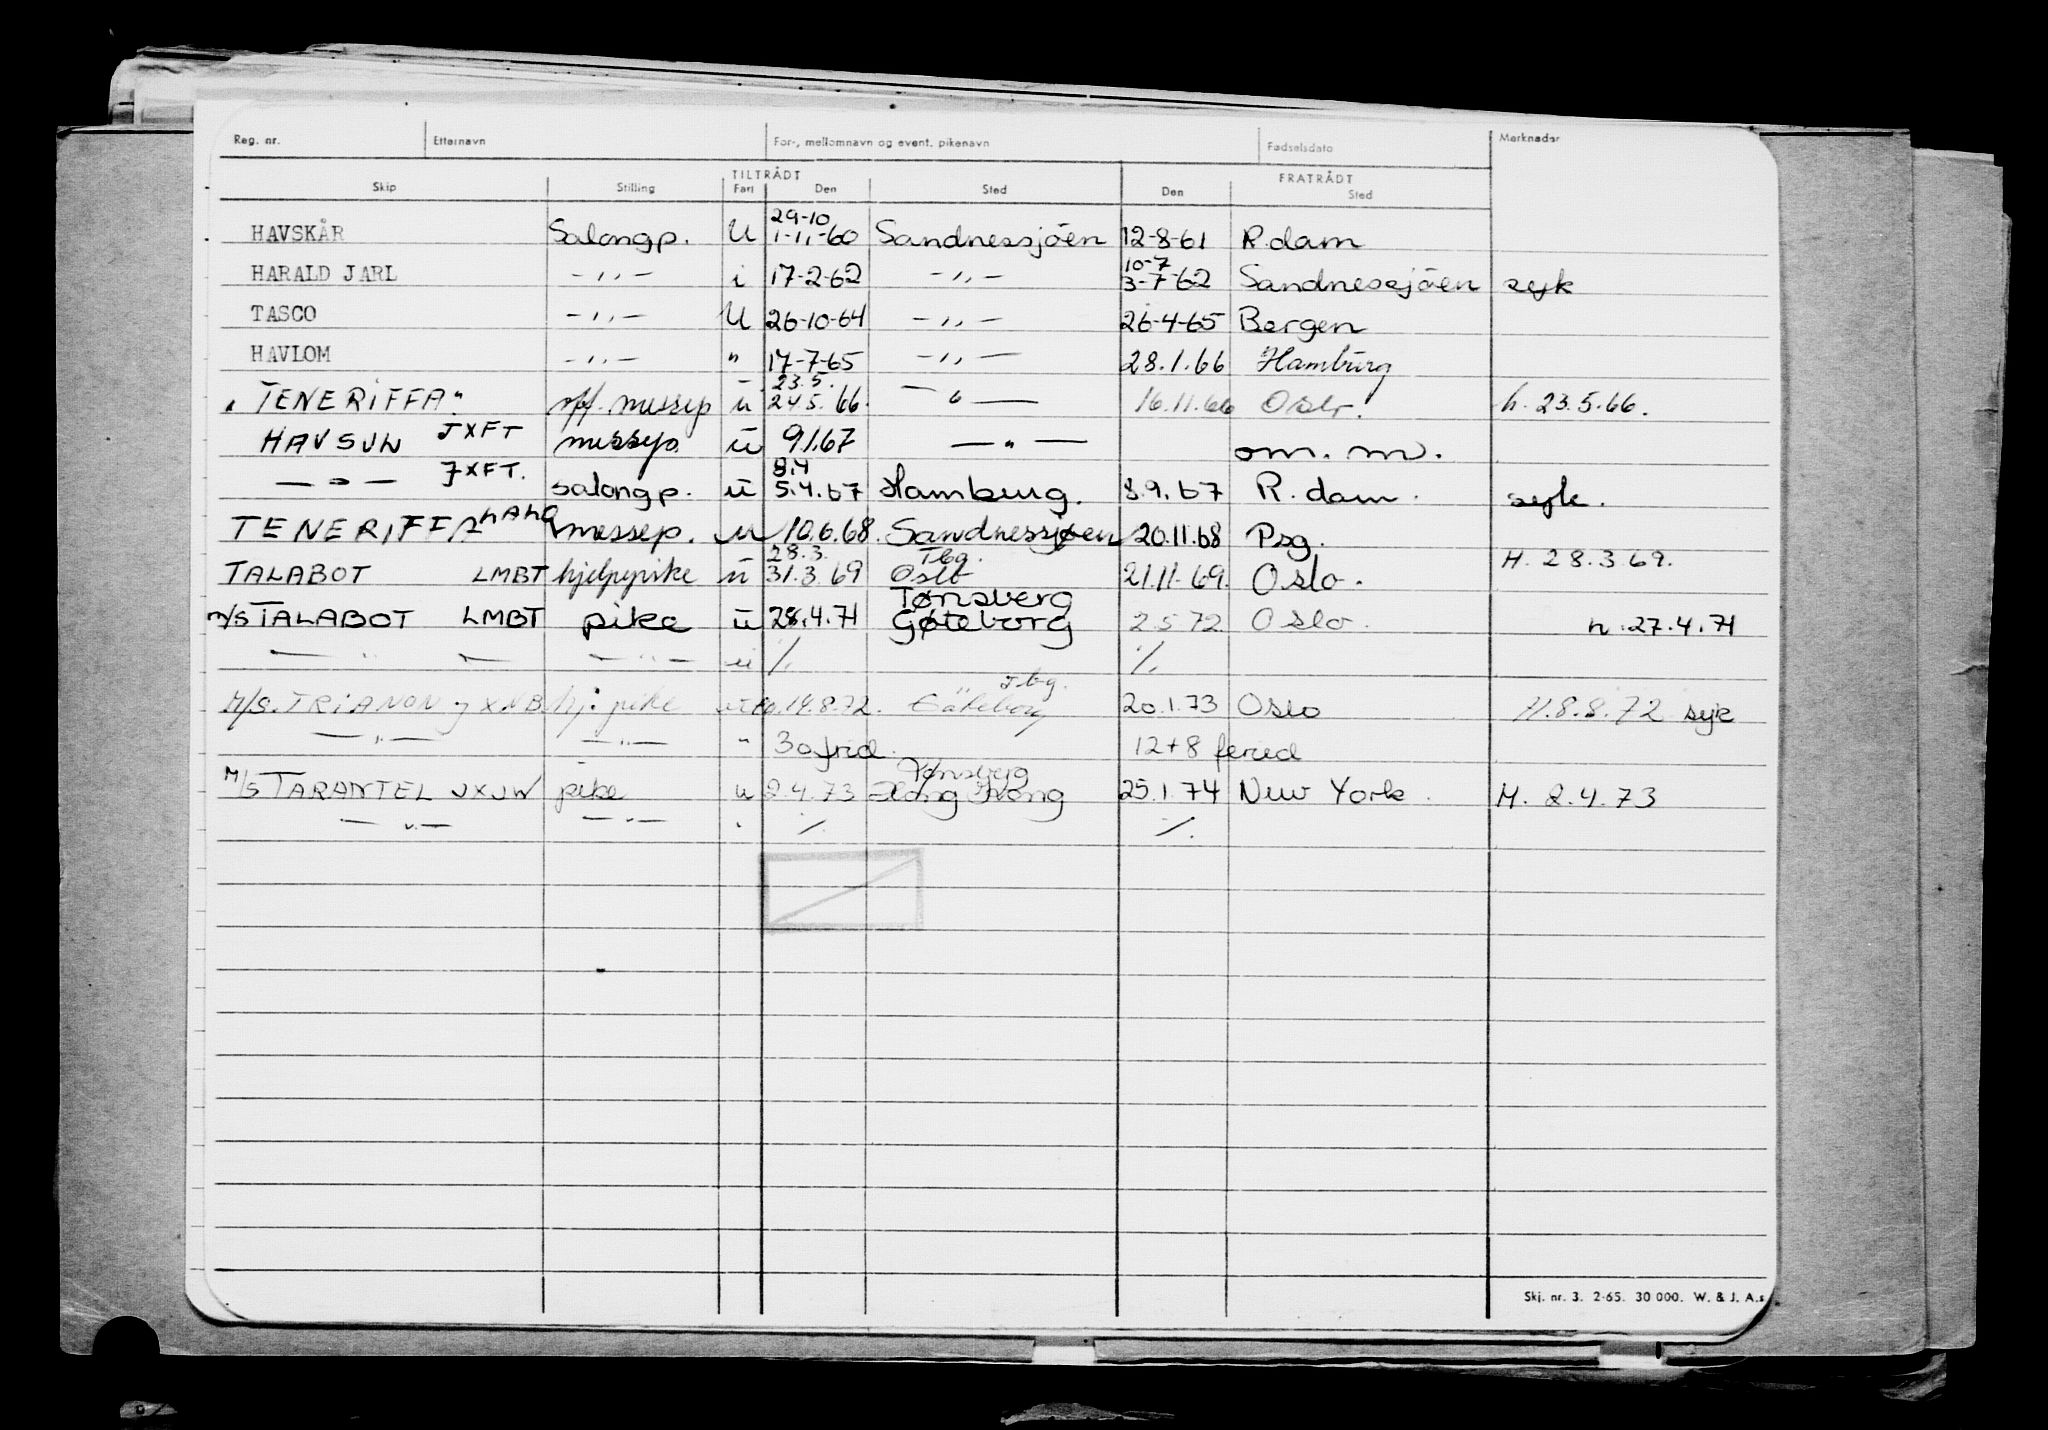 Reg. nr. Etternavn For-, mellomnavn og event. pikenavn Fødselsdato Merknader
TILTRÅDT FRATRÅDT
Skip Stilling Fart Den Sted Den Sted
29-10
HAVSKÅR Salongp. U 1-11-60 Sandnessjöen 12-8-61 R.dam
10-7
HARALD JARL -"- i 17-2-62 -"- 3-7-62 Sandnessjöen syk
TASCO -"- U 26-10-64 -"- 26-4-65 Bergen
HAVLOM -"- " 17-7-65 -"- 28.1.66 Hamburg
23.5.
"TENERIFFA" messep u 24.5.66. -"- 16.11.66 Oslo. h. 23.5.66.
HAVSUN JXFT messep. u 9.1.67 -"- om. m.
8.4
-"- JXFT. salongp. u 5.4.67 Hamburg. 8.9.67 R.dam. syk.
TENERIFFA LAHQ messep. u 10.6.68. Sandnessjøen 20.11.68 Psg.
28.3. Tbg. H. 28.3.69.
TALABOT LMBT hjelpepike u 31.3.69 Oslo 21.11.69. Oslo.
Tønsberg
M/S TALABOT LMBT pike u 28.4.71 Gøteborg 2.5.72 Oslo. h.27.4.71
-"- - -"- u % %
Tbg.
M/S. TRIANON JXNB hj. pike 14.8.72. Göteborg 20.1.73 Oslo H.8.8.72 syk
-"- -"- " 30 frid. 12+8 feried
Tønsberg
M/S TARANTEL JXJW pike u 2.4.73 Hong Kong 25.1.74 New York. H. 2.4.73
-"- -"- " % %
Skj. nr. 3. 2-65. 30 000. W. & J. A.s